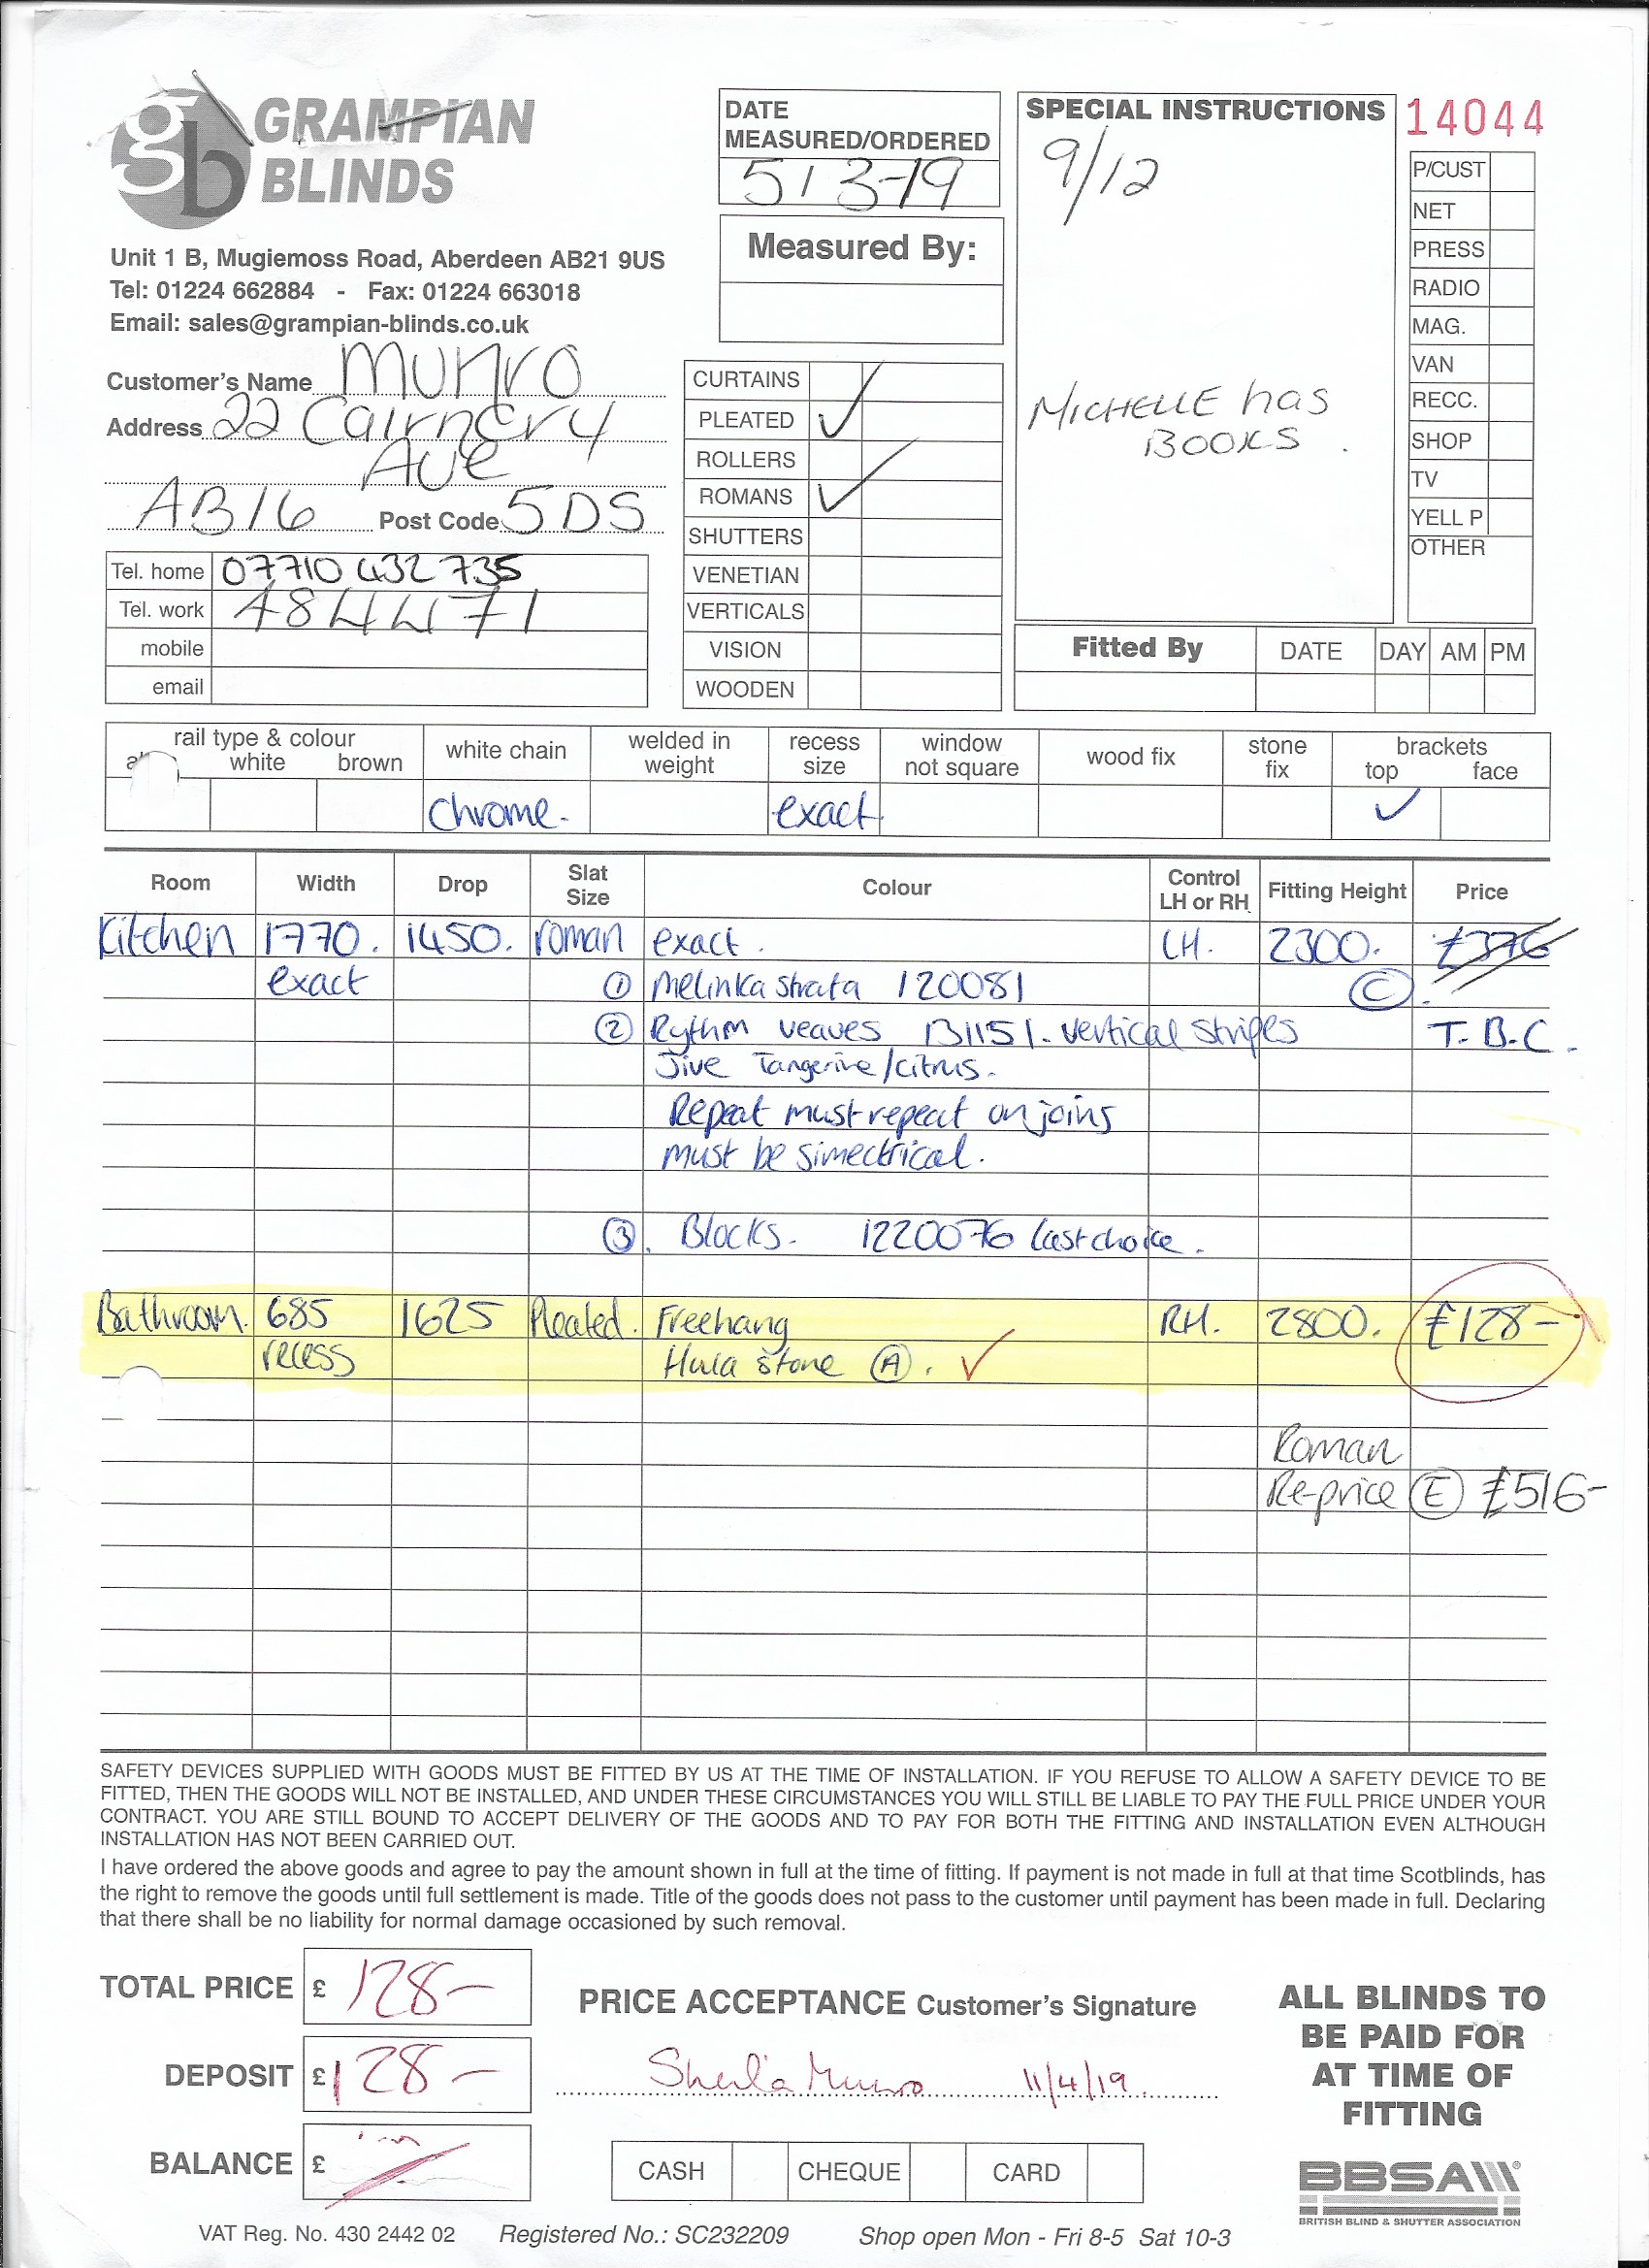 gb GRAMPIAN
BLINDS
Unit 1 B, Mugiemoss Road, Aberdeen AB21 9US
Tel: 01224 662884 - Fax: 01224 663018
Email: sales@grampian-blinds.co.uk
Customer's Name Munro
Address 22 Cairncry
Ave
AB16 Post Code 5DS
Tel. home 07710 432 735
Tel. work 484471
mobile
email
DATE
MEASURED/ORDERED
5/3-19
Measured By:
CURTAINS
PLEATED ✓
ROLLERS
ROMANS ✓
SHUTTERS
VENETIAN
VERTICALS
VISION
WOODEN
SPECIAL INSTRUCTIONS
9/12
MICHELLE has
BOOKS.
14044
P/CUST
NET
PRESS
RADIO
MAG.
VAN
RECC.
SHOP
TV
YELL P
OTHER
Fitted By DATE DAY AM PM
rail type & colour
white brown
white chain
welded in
weight
recess
size
window
not square
wood fix
stone
fix
brackets
top face
Chrome. exact. ✓
Room Width Drop Slat Size Colour Control LH or RH Fitting Height Price
Kitchen 1770. 1450. roman exact. LH. 2300. £376
exact ① Melinka strata 120081 Ⓒ.
② Rythm veaves B1151. vertical stripes T.B.C.
Jive Tangerine/citrus.
Repeat must repeat on joins
must be simectrical.
③. Blocks. 1220076 last choice.
Bathroom. 685 1625 Pleated. Freehang RH. 2800. £128-
recess Hula stone Ⓐ. ✓
Roman
Re-price Ⓔ £516-
SAFETY DEVICES SUPPLIED WITH GOODS MUST BE FITTED BY US AT THE TIME OF INSTALLATION. IF YOU REFUSE TO ALLOW A SAFETY DEVICE TO BE
FITTED, THEN THE GOODS WILL NOT BE INSTALLED, AND UNDER THESE CIRCUMSTANCES YOU WILL STILL BE LIABLE TO PAY THE FULL PRICE UNDER YOUR
CONTRACT. YOU ARE STILL BOUND TO ACCEPT DELIVERY OF THE GOODS AND TO PAY FOR BOTH THE FITTING AND INSTALLATION EVEN ALTHOUGH
INSTALLATION HAS NOT BEEN CARRIED OUT.
I have ordered the above goods and agree to pay the amount shown in full at the time of fitting. If payment is not made in full at that time Scotblinds, has
the right to remove the goods until full settlement is made. Title of the goods does not pass to the customer until payment has been made in full. Declaring
that there shall be no liability for normal damage occasioned by such removal.
TOTAL PRICE £ 128-
DEPOSIT £ 128-
BALANCE £
PRICE ACCEPTANCE Customer's Signature
Sheila Munro 11/4/19
CASH CHEQUE CARD
ALL BLINDS TO
BE PAID FOR
AT TIME OF
FITTING
BBSA
BRITISH BLIND & SHUTTER ASSOCIATION
VAT Reg. No. 430 2442 02 Registered No.: SC232209 Shop open Mon - Fri 8-5 Sat 10-3